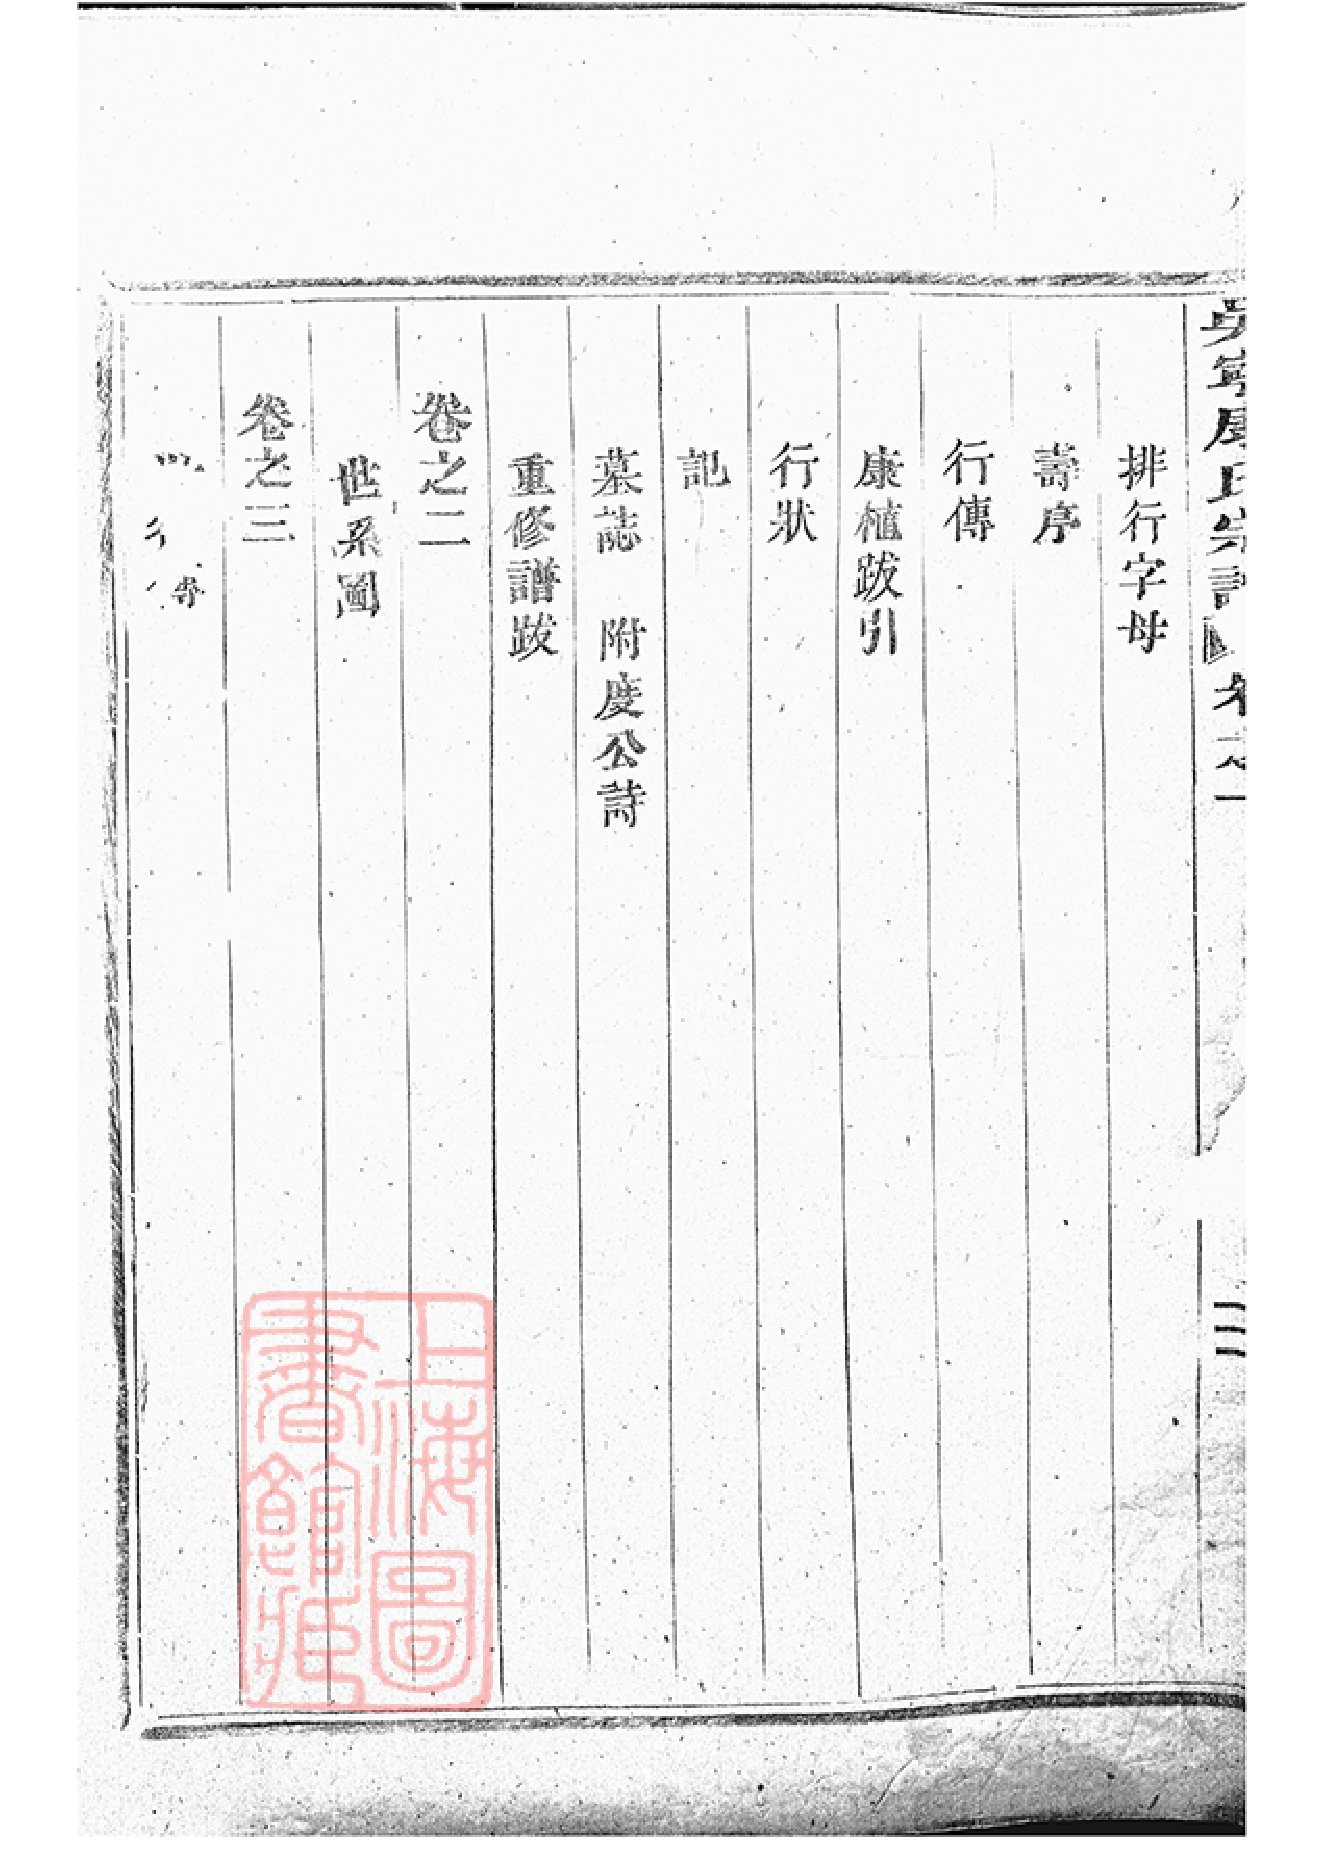 排行字母
壽序
行傳
康植跋引
行狀
記
墓誌　附度公詩
重修譜跋
卷之二
世系圖
卷之三
上海圖書館藏